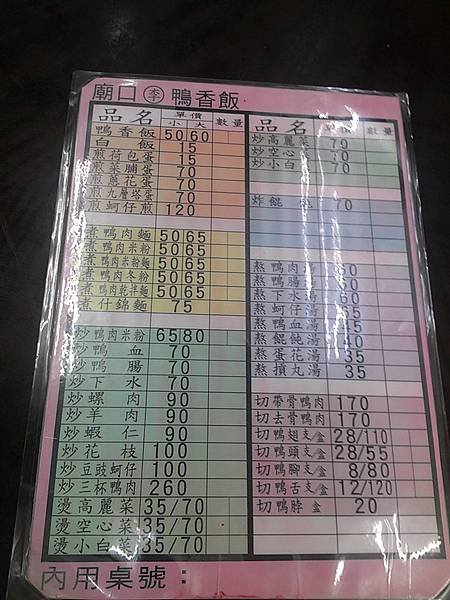 廟口 李 鴨香飯
品名 單價 小 大 數量
鴨香飯 50 60
白飯 15
煎荷包蛋 15
煎菜脯蛋 70
煎蔥花蛋 70
煎九層塔蛋 70
煎蚵仔煎 120
煮鴨肉麵 50 65
煮鴨肉米粉 50 65
煮鴨肉米粉麵 50 65
煮鴨肉冬粉 50 65
煮鴨肉乾拌麵 50 65
煮什錦麵 75
炒鴨肉米粉 65 80
炒鴨血 70
炒鴨腸 70
炒下水 70
炒螺肉 90
炒羊肉 90
炒蝦仁 90
炒花枝 100
炒豆豉蚵仔 100
炒三杯鴨肉 260
燙高麗菜 35/70
燙空心菜 35/70
燙小白菜 35/70
品名 單價 數量
炒高麗菜 70
炒空心菜 70
炒小白菜 70
炸餛飩 70
煮鴨肉湯
煮鴨腸湯
煮下水湯 60
煮蚵仔湯 65
煮鴨血湯 45
煮餛飩湯 40
煮蛋花湯 35
煮摃丸湯 35
切帶骨鴨肉 170
切去骨鴨肉 170
切鴨翅支/盒 28/110
切鴨頭支/盒 28/55
切鴨腳支/盒 8/80
切鴨舌支/盒 12/120
切鴨脖 盒 20
內用桌號：